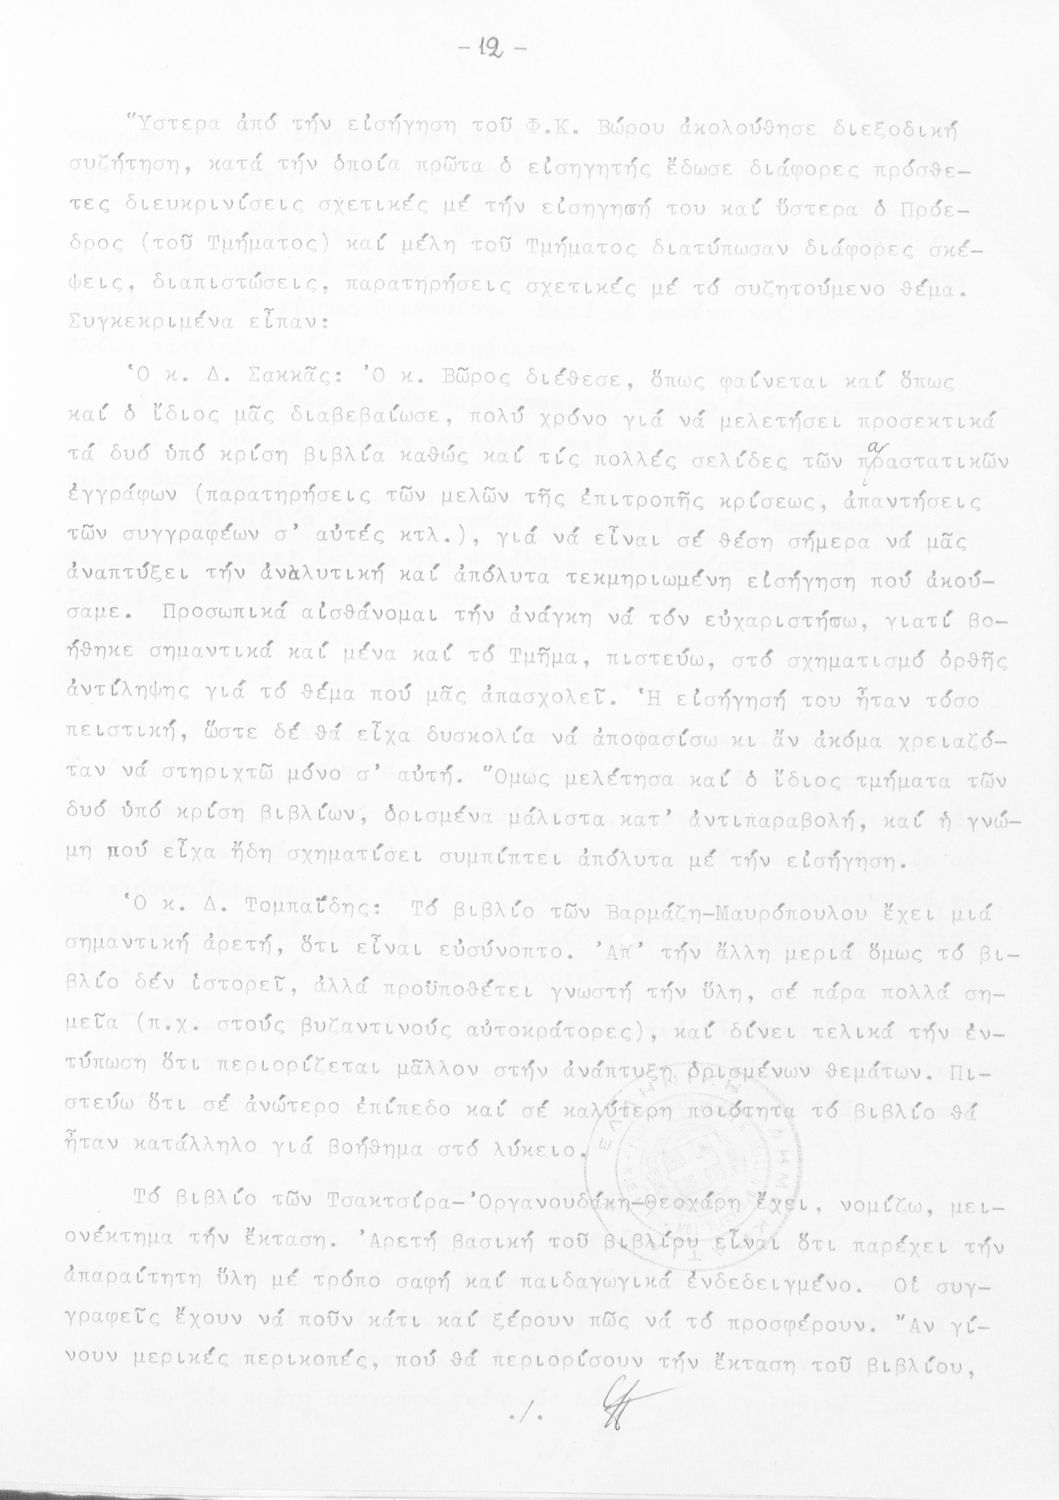 - 12 -
Ὕστερα ἀπό τήν εἰσήγηση τοῦ Φ.Κ. Βώρου ἀκολούθησε διεξοδική
συζήτηση, κατά τήν ὁποία πρῶτα ὁ εἰσηγητής ἔδωσε διάφορες πρόσθε-
τες διευκρινίσεις σχετικές μέ τήν εἰσήγησή του καί ὕστερα ὁ Πρόε-
δρος (τοῦ Τμήματος) καί μέλη τοῦ Τμήματος διατύπωσαν διάφορες σκέ-
ψεις, διαπιστώσεις, παρατηρήσεις σχετικές μέ τό συζητούμενο θέμα.
Συγκεκριμένα εἶπαν:
Ὁ κ. Δ. Σακκᾶς: Ὁ κ. Βῶρος διέθεσε, ὅπως φαίνεται καί ὅπως
καί ὁ ἴδιος μᾶς διαβεβαίωσε, πολύ χρόνο γιά νά μελετήσει προσεκτικά
τά δυό ὑπό κρίση βιβλία καθώς καί τίς πολλές σελίδες τῶν παραστατικῶν
ἐγγράφων (παρατηρήσεις τῶν μελῶν τῆς ἐπιτροπῆς κρίσεως, ἀπαντήσεις
τῶν συγγραφέων σ' αὐτές κτλ.), γιά νά εἶναι σέ θέση σήμερα νά μᾶς
ἀναπτύξει τήν ἀναλυτική καί ἀπόλυτα τεκμηριωμένη εἰσήγηση πού ἀκού-
σαμε. Προσωπικά αἰσθάνομαι τήν ἀνάγκη νά τόν εὐχαριστήσω, γιατί βο-
ήθηκε σημαντικά καί μένα καί τό Τμῆμα, πιστεύω, στό σχηματισμό ὀρθῆς
ἀντίληψης γιά τό θέμα πού μᾶς ἀπασχολεῖ. Ἡ εἰσήγησή του ἦταν τόσο
πειστική, ὥστε δέ θά εἶχα δυσκολία νά ἀποφασίσω κι ἄν ἀκόμα χρειαζό-
ταν νά στηριχτῶ μόνο σ' αὐτή. Ὅμως μελέτησα καί ὁ ἴδιος τμήματα τῶν
δυό ὑπό κρίση βιβλίων, ὁρισμένα μάλιστα κατ' ἀντιπαραβολή, καί ἡ γνώ-
μη πού εἶχα ἤδη σχηματίσει συμπίπτει ἀπόλυτα μέ τήν εἰσήγηση.
Ὁ κ. Δ. Τομπαΐδης: Τό βιβλίο τῶν Βαρμάζη-Μαυρόπουλου ἔχει μιά
σημαντική ἀρετή, ὅτι εἶναι εὐσύνοπτο. Ἀπ' τήν ἄλλη μεριά ὅμως τό βι-
βλίο δέν ἱστορεῖ, ἀλλά προϋποθέτει γνωστή τήν ὕλη, σέ πάρα πολλά ση-
μεῖα (π.χ. στούς βυζαντινούς αὐτοκράτορες), καί δίνει τελικά τήν ἐν-
τύπωση ὅτι περιορίζεται μᾶλλον στήν ἀνάπτυξη ὁρισμένων θεμάτων. Πι-
στεύω ὅτι σέ ἀνώτερο ἐπίπεδο καί σέ καλύτερη ποιότητα τό βιβλίο θά
ἦταν κατάλληλο γιά βοήθημα στό λύκειο.
Τό βιβλίο τῶν Τσακτσίρα-Ὀργανουδάκη-Θεοχάρη ἔχει, νομίζω, μει-
ονέκτημα τήν ἔκταση. Ἀρετή βασική τοῦ βιβλίου εἶναι ὅτι παρέχει τήν
ἀπαραίτητη ὕλη μέ τρόπο σαφή καί παιδαγωγικά ἐνδεδειγμένο. Οἱ συγ-
γραφεῖς ἔχουν νά ποῦν κάτι καί ξέρουν πῶς νά τό προσφέρουν. Ἄν γί-
νουν μερικές περικοπές, πού θά περιορίσουν τήν ἔκταση τοῦ βιβλίου,
./.